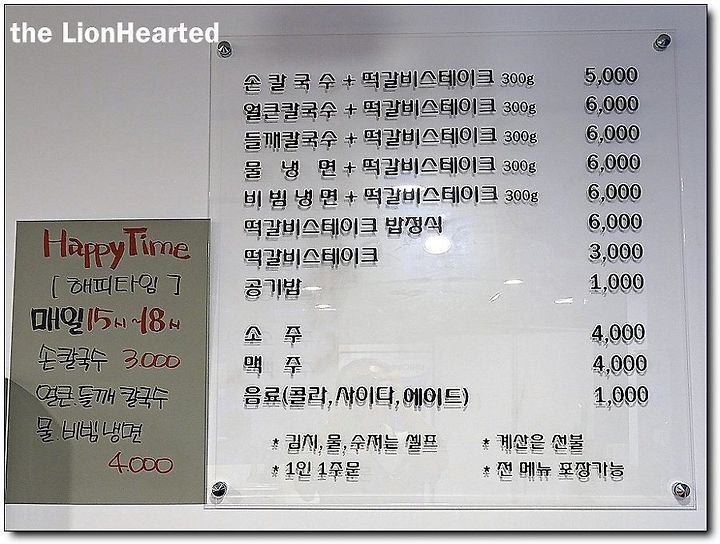 the LionHearted
손 칼 국 수 + 떡갈비스테이크 300g 5,000
얼큰칼국수 + 떡갈비스테이크 300g 6,000
들깨칼국수 + 떡갈비스테이크 300g 6,000
물 냉 면 + 떡갈비스테이크 300g 6,000
비 빔 냉 면 + 떡갈비스테이크 300g 6,000
떡갈비스테이크 밥정식 6,000
떡갈비스테이크 3,000
공기밥 1,000
소 주 4,000
맥 주 4,000
음료(콜라,사이다,에이드) 1,000
* 김치,물,수저는 셀프 * 계산은 선불
* 1인 1주문 * 전 메뉴 포장가능
Happy Time
[ 해피타임 ]
매일 15시~18시
손칼국수 3.000
얼큰.들깨 칼국수
물 비빔냉면
4.000